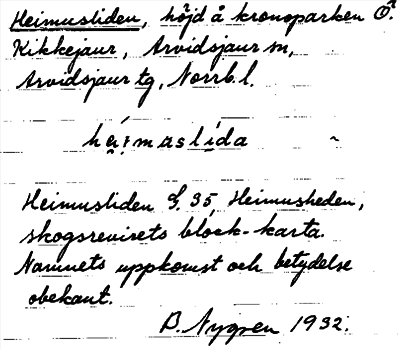 Heimusliden, höjd å kronoparken Ö.
Kikkejaur, Arvidsjaur m,
Arvidsjaur tg, Norrb. l.
hái̯maslída ~
Heimusliden G. 35, Heimusheden,
skogsrevirets block-karta.
Namnets uppkomst och betydelse
obekant.
B. Nygren 1932.